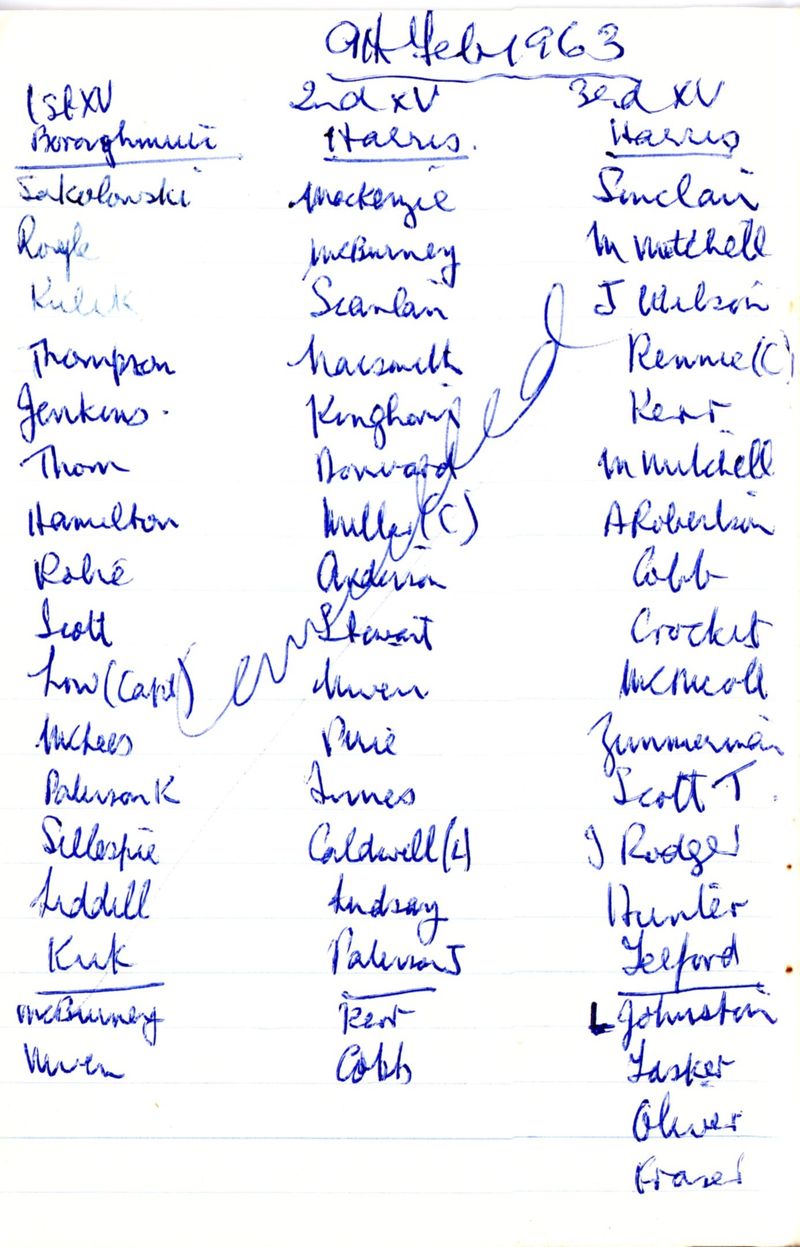 9th Feb 1963
1st XV
Boroughmuir
Sokolowski
Royle
Kulik
Thompson
Jenkins.
Thom
Hamilton
Robie
Scott
Low (Capt)
McLees
Paterson K
Gillespie
Liddell
Kirk
McBurney
Niven
2nd XV
Harris.
Mackenzie
McBurney
Scanlan
Naesmith
Kinghorn
Miller (C)
Anderson
Stewart
Niven
Pirie
Innes
Caldwell (L)
Lindsay
Paterson J
Kerr
Cobb
3rd XV
Harris
Sinclair
M Mitchell
J Wilson
Rennie (C)
Kerr
M Mitchell
A Robertson
Cobb
Crocket
McNicoll
Zimmerman
Scott T.
J Rodger
Hunter
Telford
L Johnston
Tasker
Oliver
Fraser
cancelled